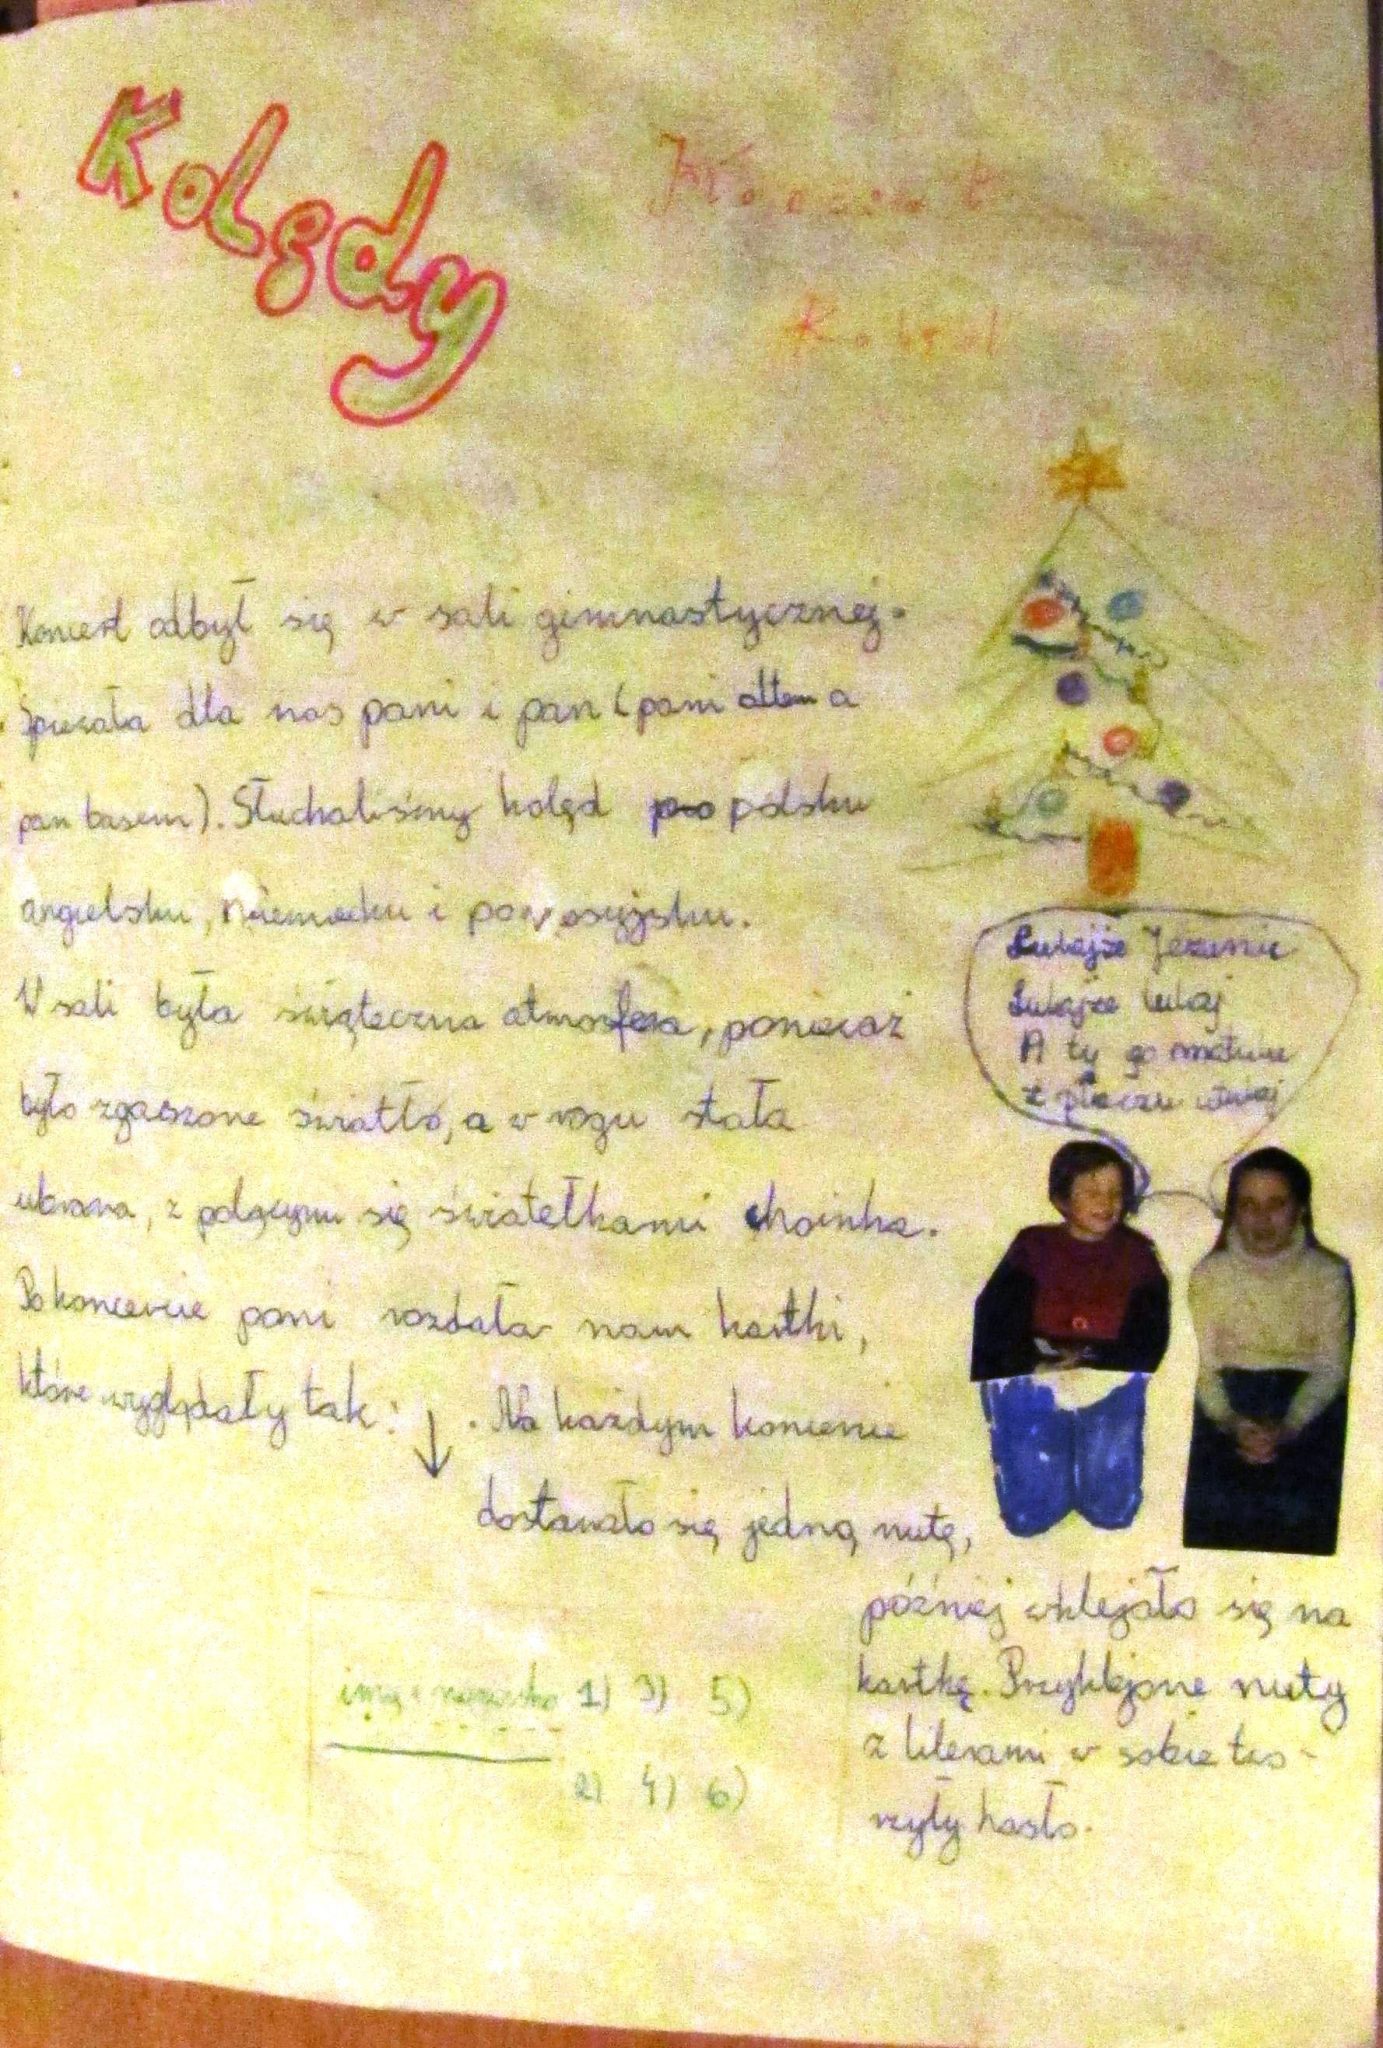 Kolędy
Koncert
Kolęd
Koncert odbył się w sali gimnastycznej.
Śpiewała dla nas pani i pan (pani altem a
pan basem). Słuchaliśmy kolęd po polsku
angielsku, niemiecku i po rosyjsku.
W sali była świąteczna atmosfera, ponieważ
było zgaszone światło, a w rogu stała
ubrana, z palącymi się światełkami choinka.
Po koncercie pani rozdała nam kartki,
które wyglądały tak: ↓ . Na każdym koncercie
dostawało się jedną nutę,
później wklejało się na
kartkę. Przyklejone nuty
z literami w sobie two-
rzyły hasło.
Lulajże Jezuniu
Lulajże lulaj
A ty go matulu
z płaczu utulaj
imię i nazwisko 1) 3) 5)
2) 4) 6)